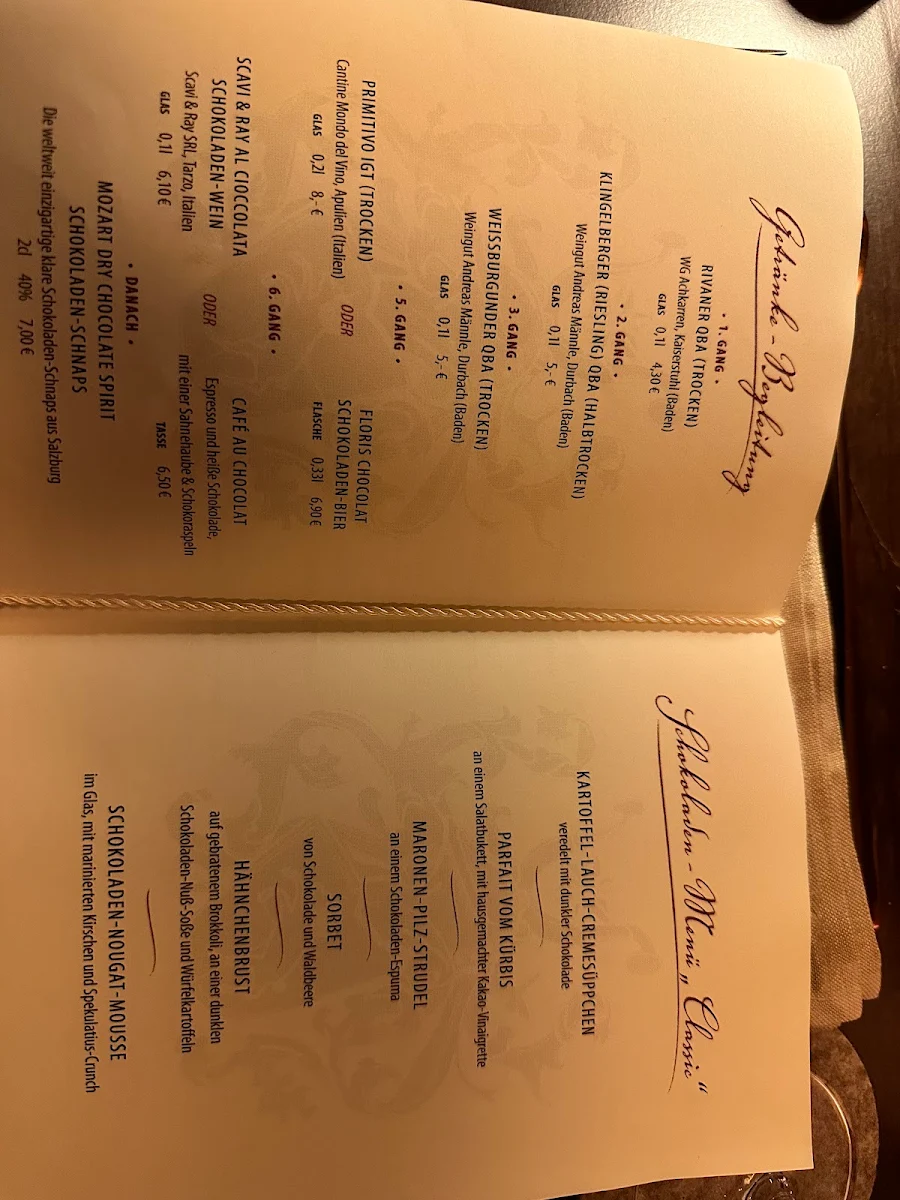 Getränke - Begleitung
• 1. GANG •
RIVANER QBA (TROCKEN)
WG Achkarren, Kaiserstuhl (Baden)
GLAS 0,1l 4,30 €
• 2. GANG •
KLINGELBERGER (RIESLING) QBA (HALBTROCKEN)
Weingut Andreas Männle, Durbach (Baden)
GLAS 0,1l 5,- €
• 3. GANG •
WEISSBURGUNDER QBA (TROCKEN)
Weingut Andreas Männle, Durbach (Baden)
GLAS 0,1l 5,- €
• 5. GANG •
PRIMITIVO IGT (TROCKEN)
Cantine Mondo del Vino, Apulien (Italien)
GLAS 0,2l 8,- €
ODER
FLORIS CHOCOLAT
SCHOKOLADEN-BIER
FLASCHE 0,33l 6,90 €
• 6. GANG •
SCAVI & RAY AL CIOCCOLATA
SCHOKOLADEN-WEIN
Scavi & Ray SRL, Tarzo, Italien
GLAS 0,1l 6,10 €
ODER
CAFÉ AU CHOCOLAT
Espresso und heiße Schokolade,
mit einer Sahnehaube & Schokoraspeln
TASSE 6,50 €
• DANACH •
MOZART DRY CHOCOLATE SPIRIT
SCHOKOLADEN-SCHNAPS
Die weltweit einzigartige klare Schokoladen-Schnaps aus Salzburg
2cl 40% 7,00 €
Schokoladen - Menü „Classic“
KARTOFFEL-LAUCH-CREMESÜPPCHEN
veredelt mit dunkler Schokolade
PARFAIT VOM KÜRBIS
an einem Salatbukett, mit hausgemachter Kakao-Vinaigrette
MARONEN-PILZ-STRUDEL
an einem Schokoladen-Espuma
SORBET
von Schokolade und Waldbeere
HÄHNCHENBRUST
auf gebratenem Brokkoli, an einer dunklen
Schokoladen-Nuß-Soße und Würfelkartoffeln
SCHOKOLADEN-NOUGAT-MOUSSE
im Glas, mit marinierten Kirschen und Spekulatius-Crunch